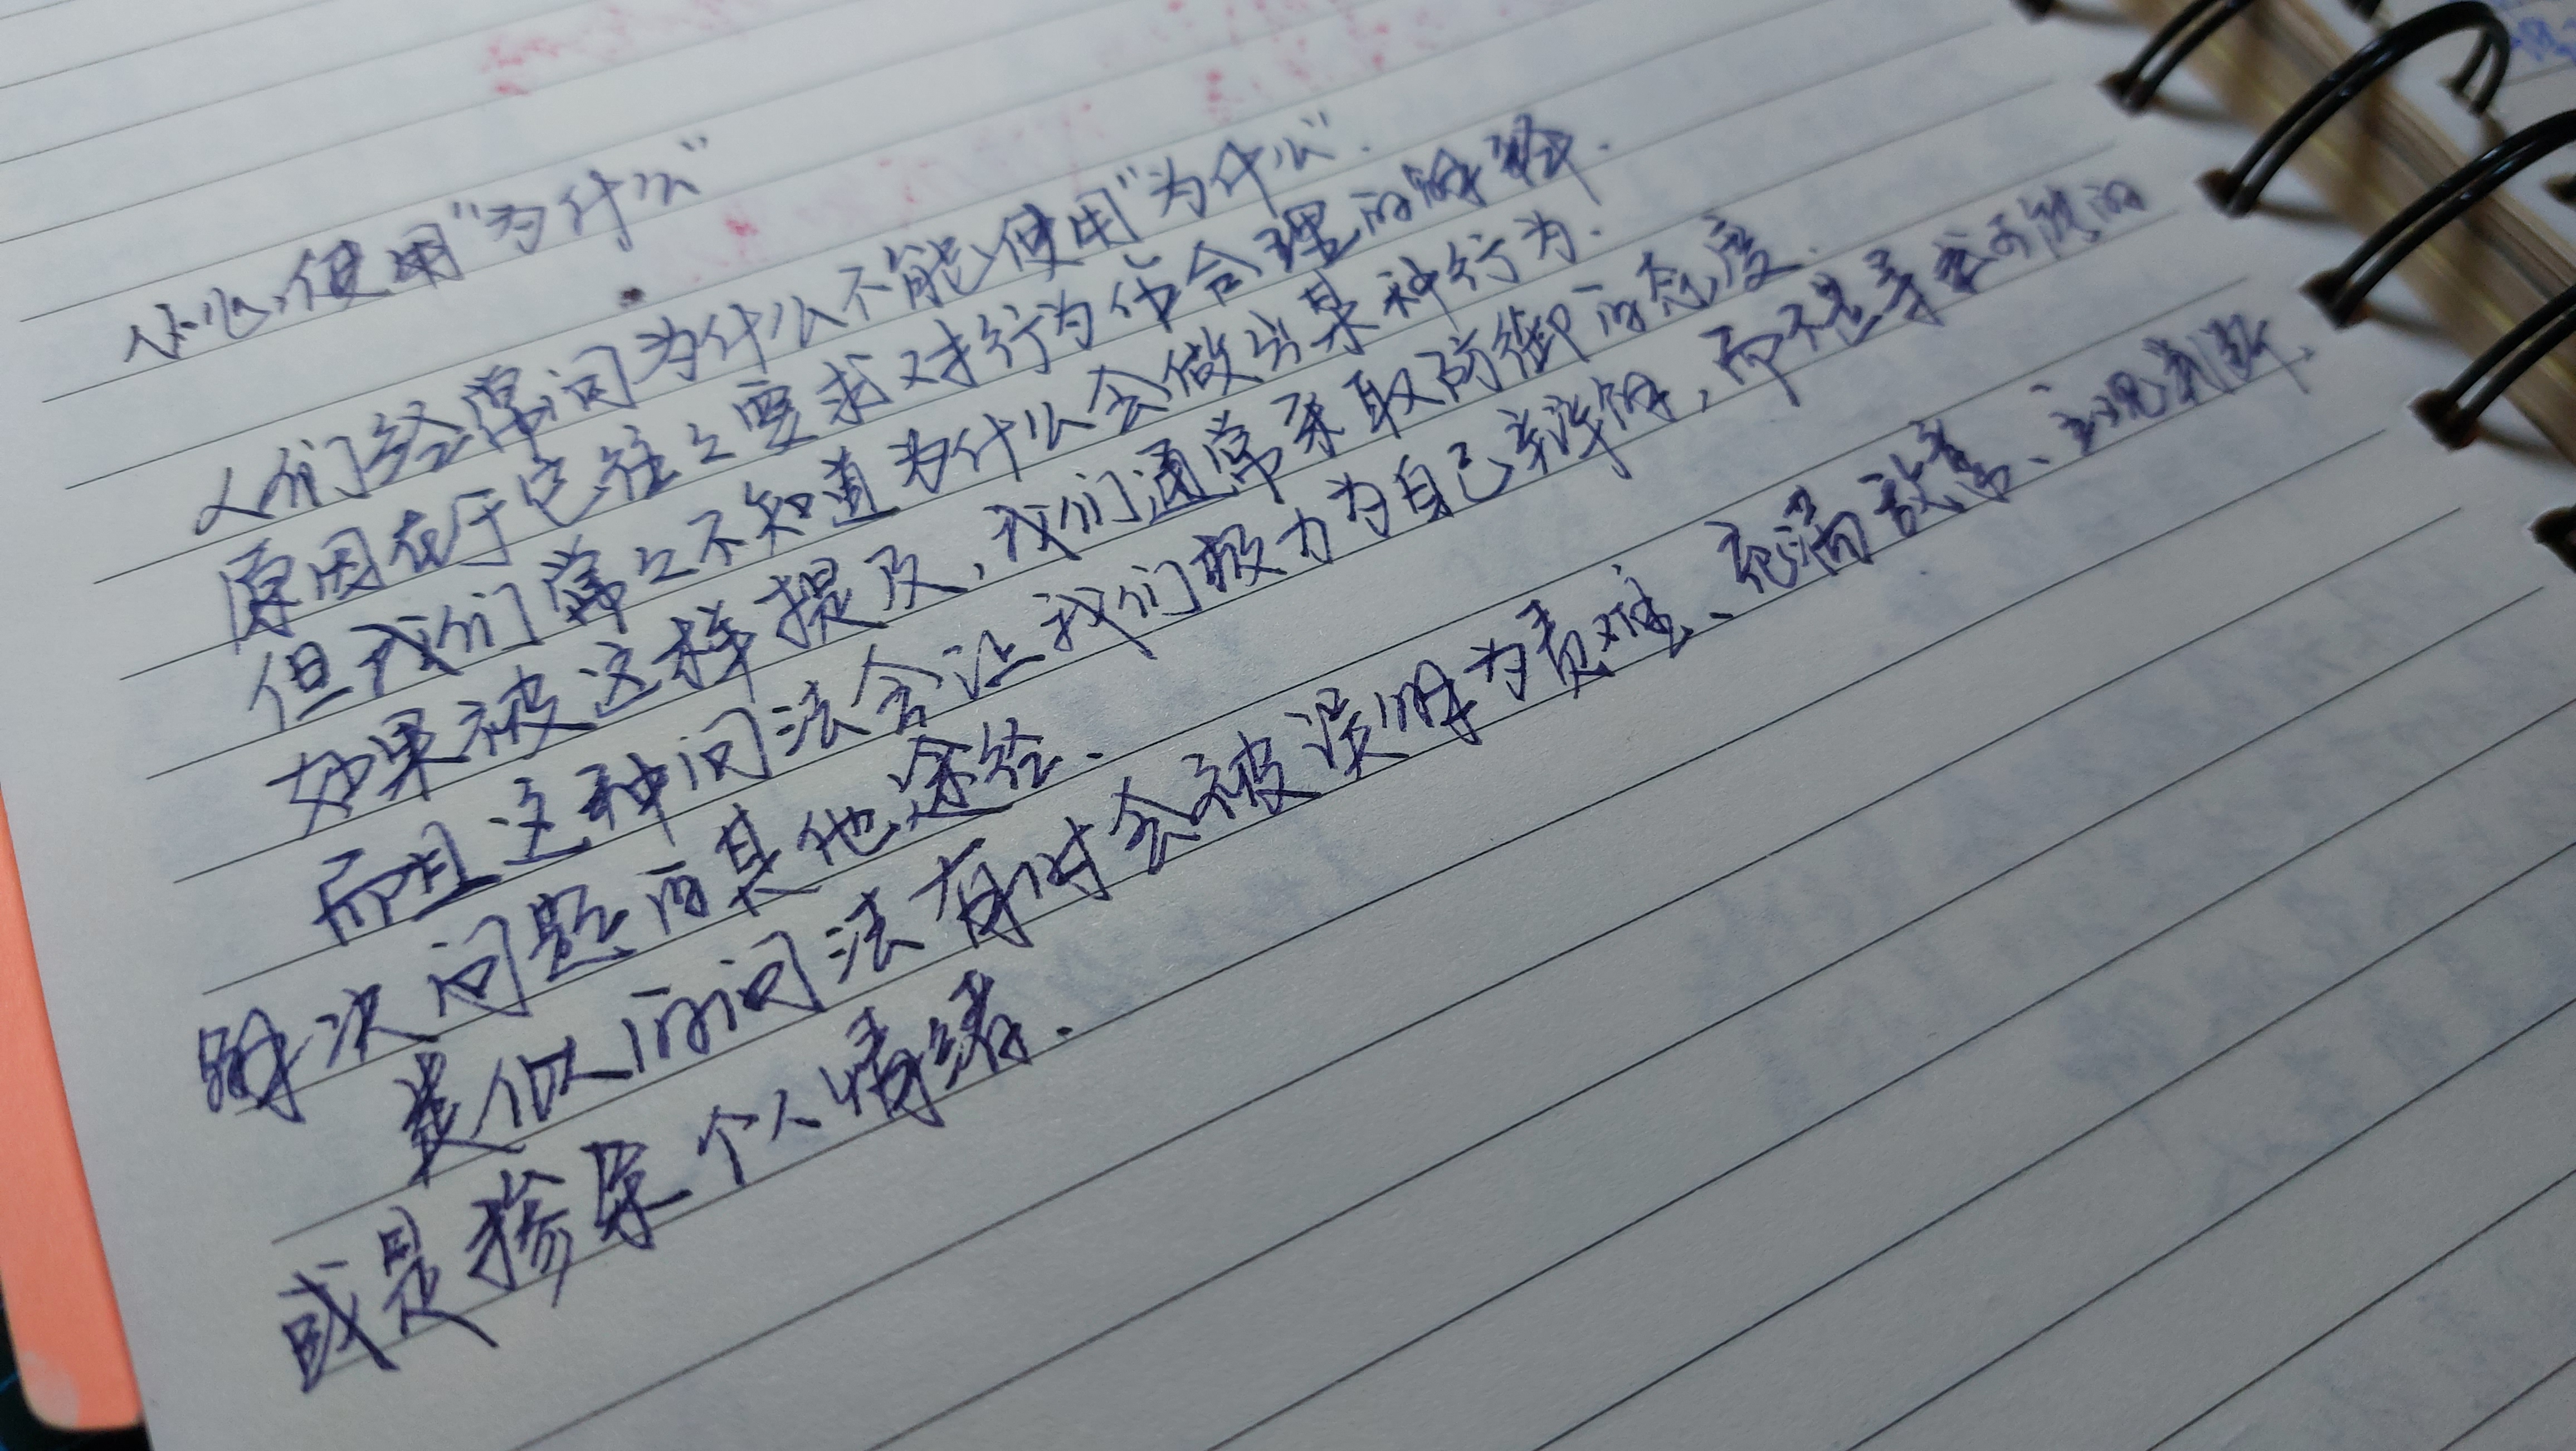 小心使用“为什么”
人们经常问为什么不能使用“为什么”.
原因在于它往々要求对行为作合理的解释.
但我们常々不知道为什么会做出某种行为.
如果被这样提及,我们通常采取防御的态度.
而且这种问法会让我们极力为自己辩解,而不是寻求可能的
解决问题的其他途径.
类似的问法有时会被误解为责难、充满敌意、主观判断、
或是掺杂个人情绪.